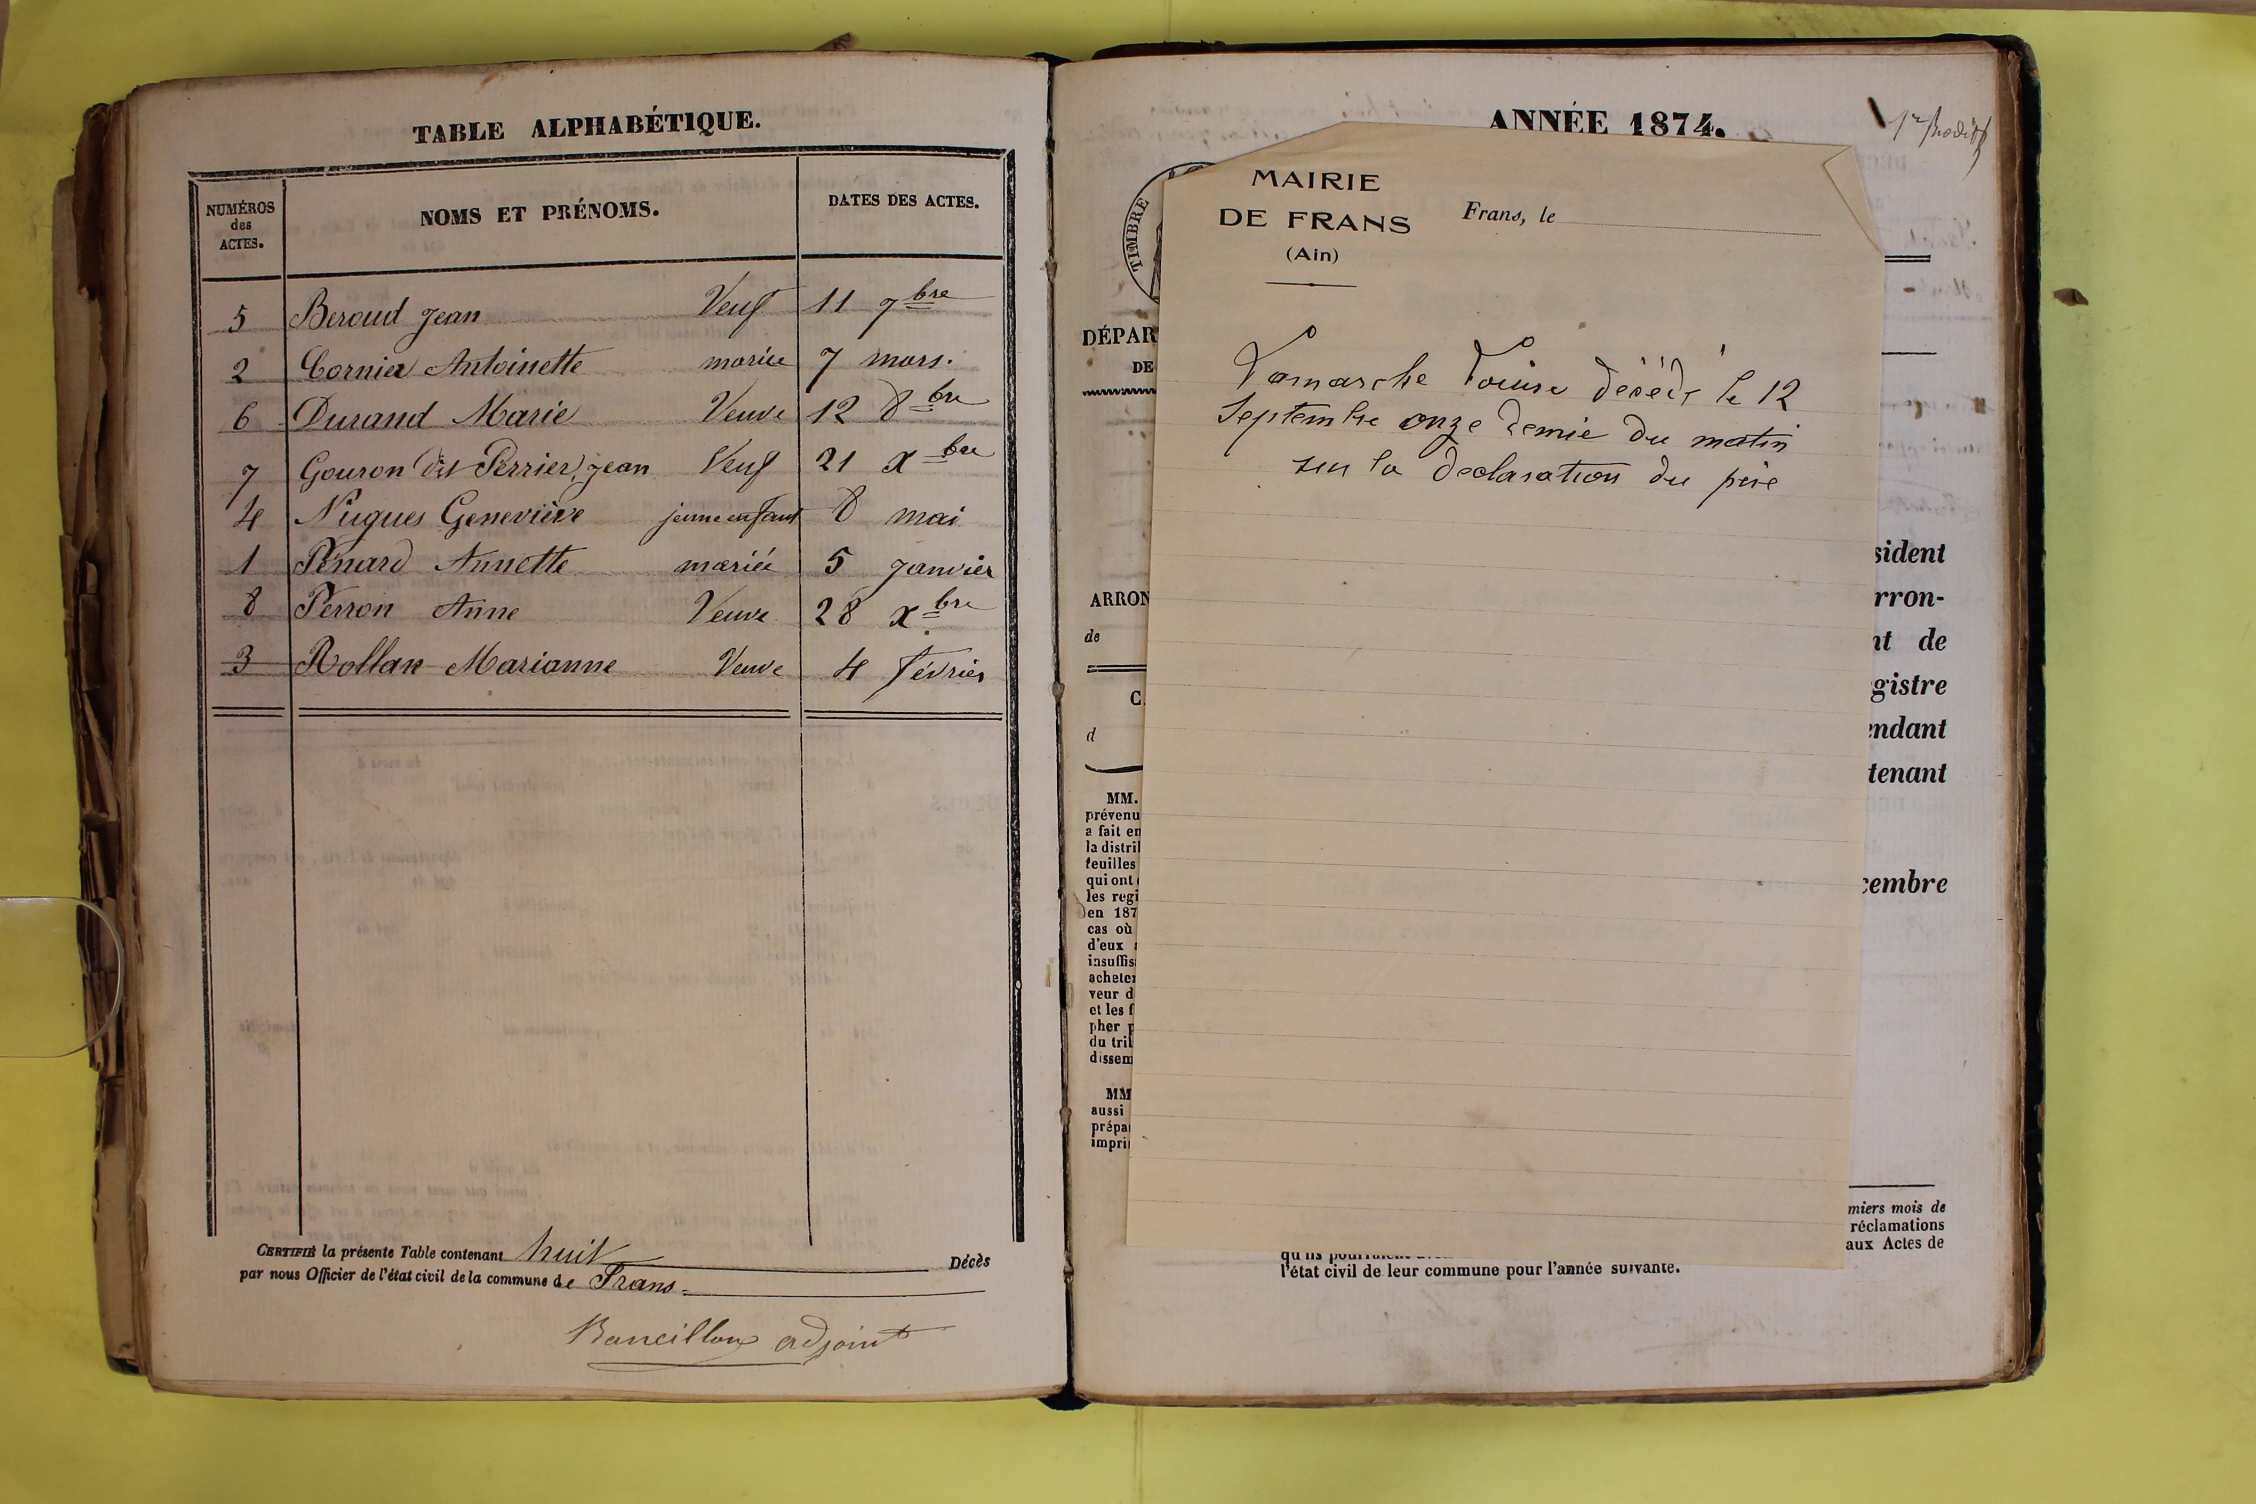 TABLE ALPHABÉTIQUE.
NUMÉROS des ACTES. NOMS ET PRÉNOMS. DATES DES ACTES.
5 Beroud Jean Veuf 11 7bre
2 Cornier Antoinette mariée 7 mars.
6 Durand Marie Veuve 12 8bre
7 Gouron dit Perrier, Jean Veuf 21 Xbre
4 Nugues Geneviève jeune enfant 8 mai
1 Pénard Annette mariée 5 Janvier
8 Perron Anne Veuve 28 Xbre
3 Rollan Marianne Veuve 4 février
CERTIFIÉ la présente Table contenant huit Décès
par nous Officier de l'état civil de la commune de Frans.
adjoint
ANNÉE 1874.
TIMBRE
MAIRIE
DE FRANS
(Ain)
Frans, le
Lamarche Louise décédé le 12
Septembre onze demie du matin
sur la declaration du père
DÉPAR
DE
ARRON
de
C
d
MM.
prévenu
a fait en
la distril
feuilles
qui ont
les regi
en 187
cas où
d'eux
insuffis
acheter
veur d
et les f
pher p
du tril
dissem
MM
aussi
prépa
impri
sident
rron-
nt de
gistre
endant
tenant
cembre
miers mois de
réclamations
aux Actes de
qu'ils pourraient
l'état civil de leur commune pour l'année suivante.